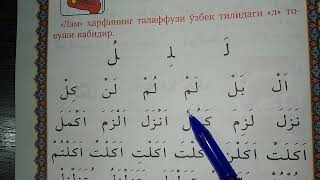 «Лам» ҳарфининг талаффузи ўзбек тилидаги «л» то-
вуши кабидир.
لَ لِ لُ
اَلْ بَلْ لَمْ لُمْ لَنْ كِلْ
نَزَلَ لَزِمَ كَمُلَ اَنْزَلَ اَلْزَمَ اَكْمَلَ
اَكَلَ اَكَلْنَ اَكَلْتَ اَكَلْتِ اَكَلْتُ اَكَلْتُمْ